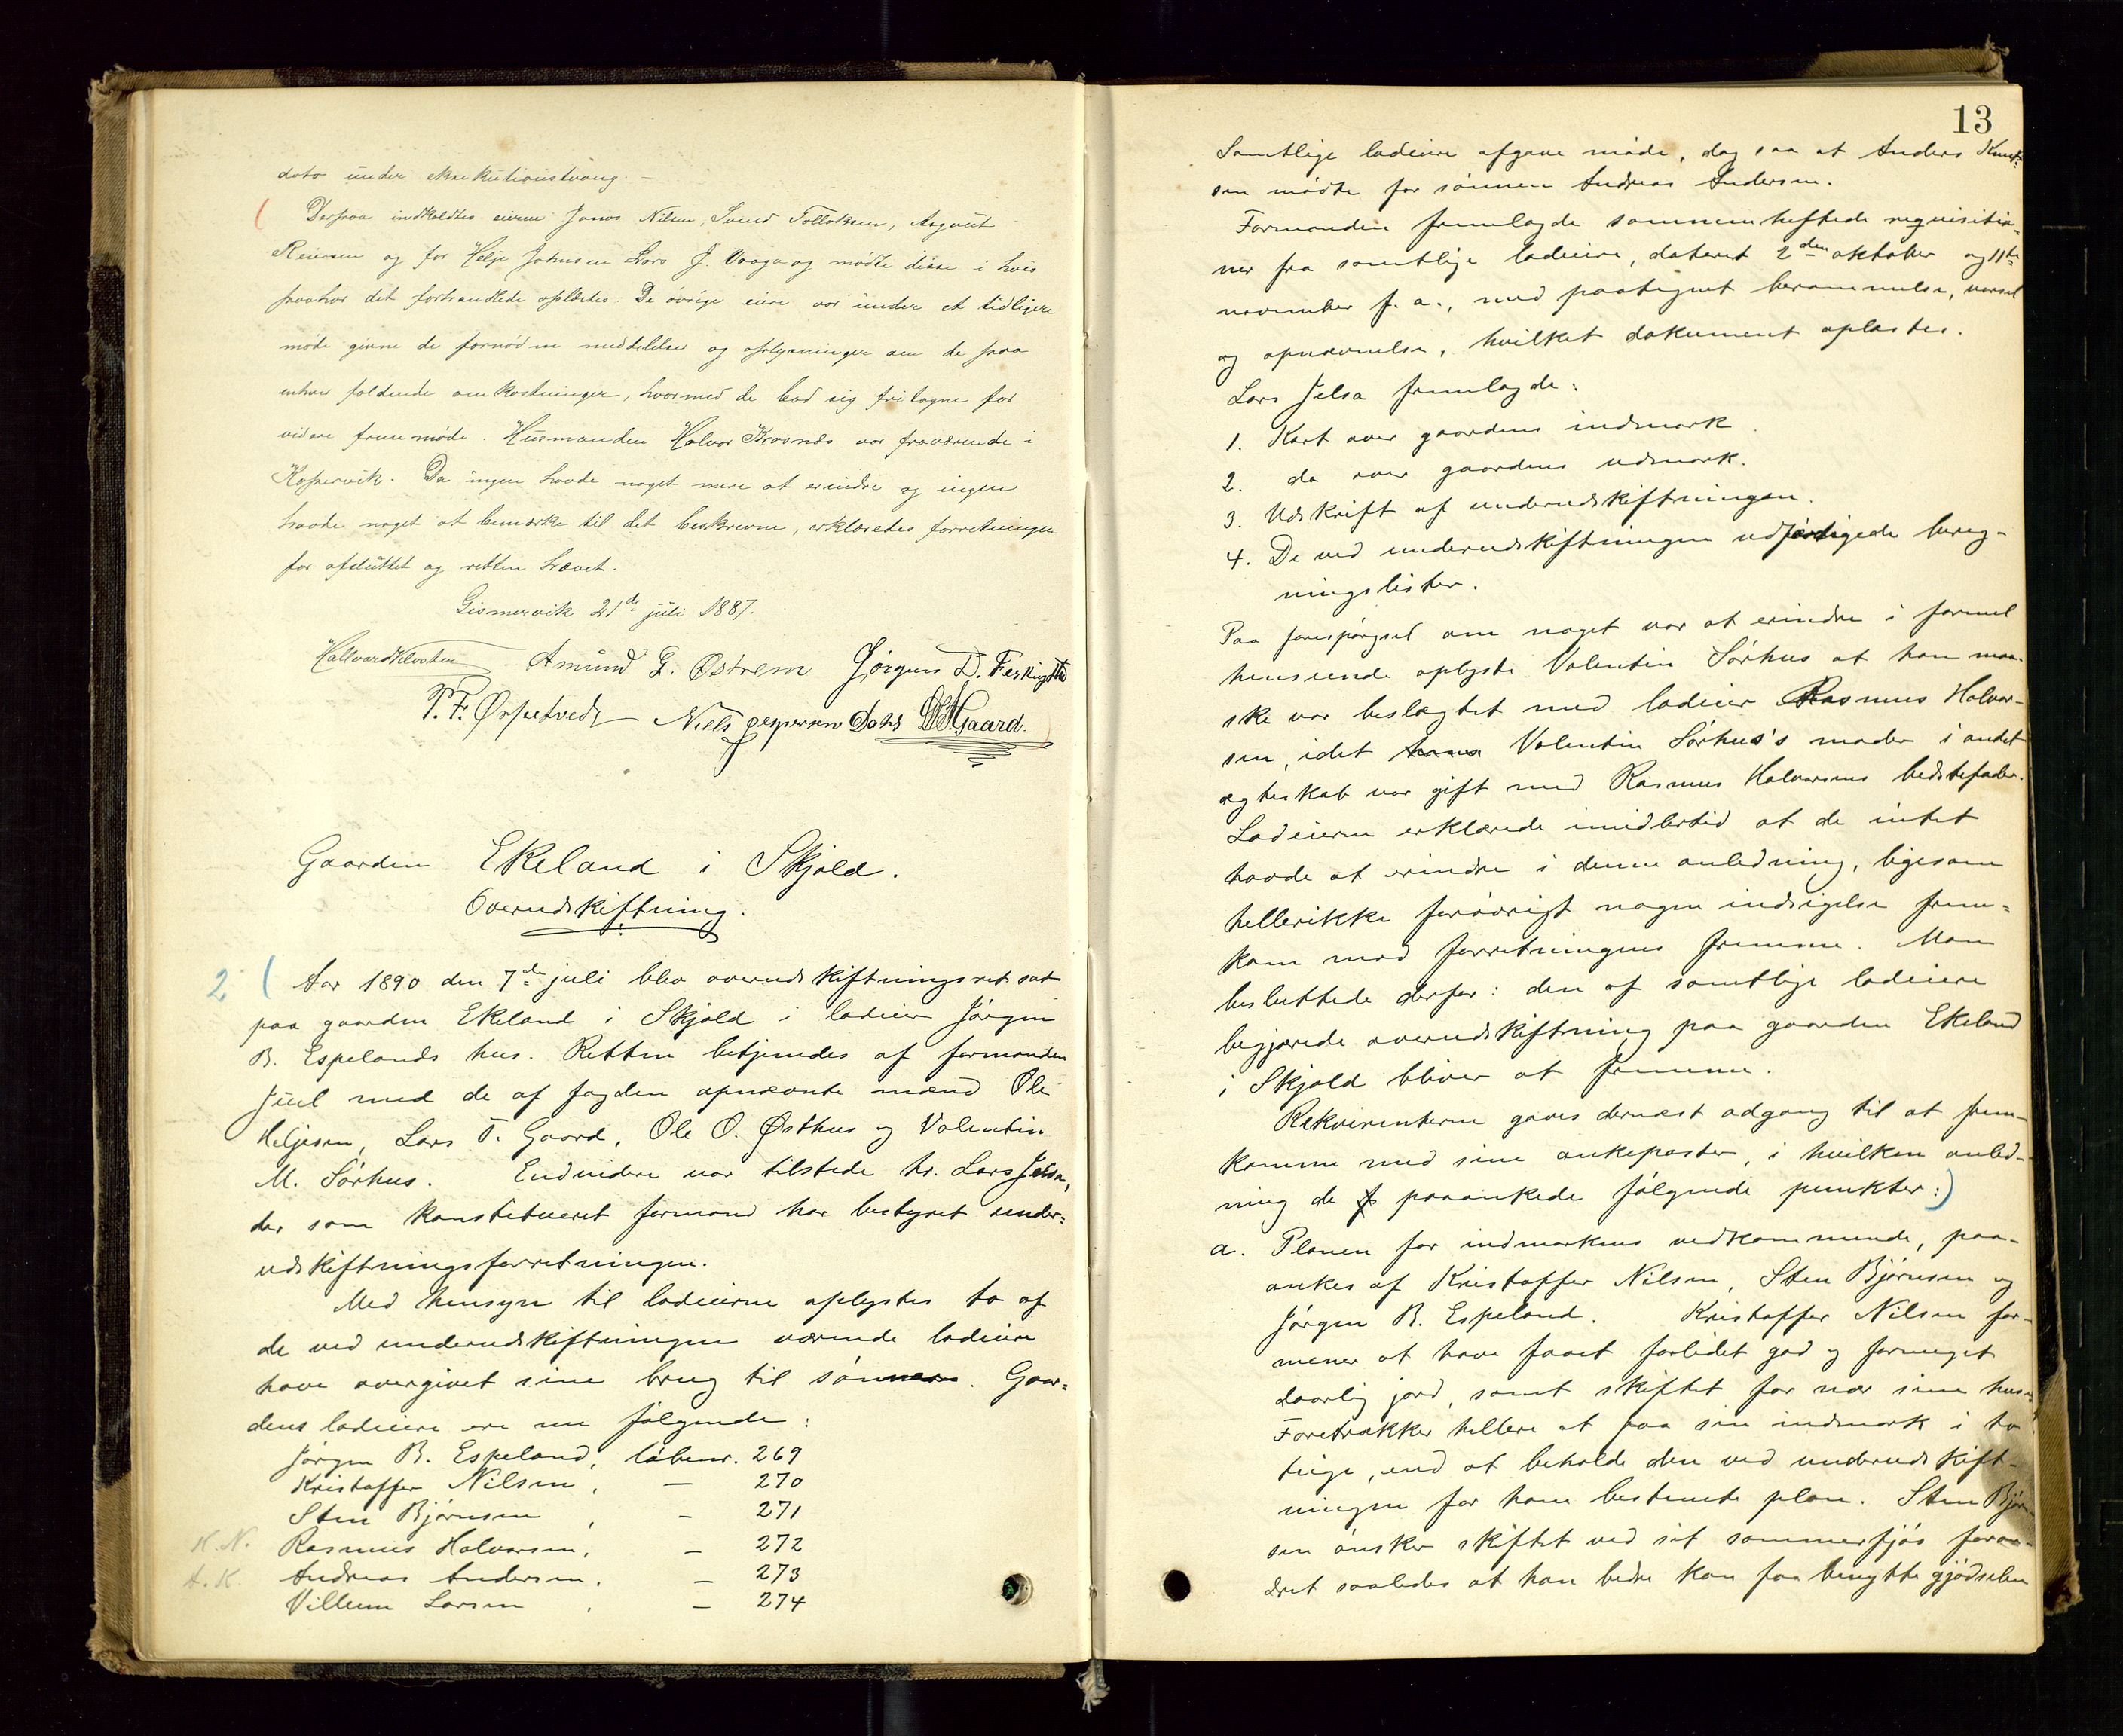 dato under eksekutionstvang. —
Derpaa indkaldtes eierne Jonas Nilsen, Svend Tollaksen, Asgaut
Reiersen og for Helje Johnsen Lars J. Vaaga og mødte disse i hvis
paahør det forhandlede oplæstes. De øvrige eiere var under et tidligere
møde givne de fornødne meddelelser og oplysninger om de paa
enhver faldende omkostninger, hvormed de bad sig fritagne for
videre fremmøde. Husmanden Halvor Krosnæs var fraværende i
Kopervik. Da ingen havde noget mere at erindre og ingen
havde noget at bemærke til det beskrevne, erklæredes forretningen
for afsluttet og retten hævet.
Gismervik 21de juli 1887.
Hallvard Kloster Amund G. Østrem Jørgen D. Ferkingstad
T. F. Ørpetvedt Niels Jespersen Dahs D. H. Gaard.
Gaarden Ekeland i Skjold.
Overudskiftning.
2 ( Aar 1890 den 7de juli blev overudskiftningsret sat
paa gaarden Ekeland i Skjold i lodeier Jørgen
B. Espelands hus. Retten betjendes af formanden
Juul med de af fogden opnævnte mænd Ole
Heljesen, Lars T. Gaard, Ole O. Østhus og Valentin
M. Sørhus. Endvidere var tilstede hr. Lars Jelsa,
der som konstitueret formand har bestyret under=
udskiftningsforretningen.
Med hensyn til lodeierne oplystes to af
de ved underudskiftningen værende lodeiere
have overgivet sine brug til sønnerne. Gaar=
dens lodeiere ere nu følgende:
Jørgen B. Espeland, løbenr. 269
Kristoffer Nilsen, — 270
Sten Bjørnsen, — 271
K. N. Rasmus Halvorsen, — 272
A. K. Andreas Andersen, — 273
Villum Larsen, — 274
13
Samtlige lodeiere afgave møde, dog saa at Anders Knut=
sen mødte for sønnen Andreas Andersen.
Formanden fremlagde sammenheftede requisitio=
ner fra samtlige lodeiere, dateret 2den oktober og 11te
november f. a., med paategnet berammelse, varsel
og opnævnelse, hvilket dokument oplæstes.
Lars Jelsa fremlagde:
1. Kart over gaardens indmark.
2. do over gaardens udmark.
3. Udskrift af underudskiftningen.
4. De ved underudskiftningen udfærdigede bereg-
ningslister.
Paa forespørgsel om noget var at erindre i formel
henseende oplyste Valentin Sørhus at han maa-
ske var beslægtet med lodeier Rasmus Halvor-
sen, idet hans Valentin Sørhus's moder i andet
ægteskab var gift med Rasmus Halvorsens bedstefader.
Lodeierne erklærede imidlertid at de intet
havde at erindre i denne anledning, ligesom
hellerikke forøvrigt nogen indsigelse frem=
kom mod forretningens fremme. Man
besluttede derfor: den af samtlige lodeiere
begjærede overudskiftning paa gaarden Ekeland
i Skjold bliver at fremme.
Rekvirenterne gaves dernæst adgang til at frem-
komme med sine ankeposter, i hvilken anled-
ning de f paaankede følgende punkter:)
a. Planen for indmarkens vedkommende, paa-
ankes af Kristoffer Nilsen, Sten Bjørnsen og
Jørgen B. Espeland. Kristoffer Nilsen for-
mener at have faaet forlidet god og formeget
daarlig jord, samt skiftet for nær sine huse.
Foretrækker hellere at faa sin indmark i to
teige, end at beholde den ved underudskift-
ningen for ham bestemte plan. Sten Bjørn-
sen ønsker skiftet ved sit sommerfjøs foran-
dret saaledes at han bedre kan faa benytte gjødselen